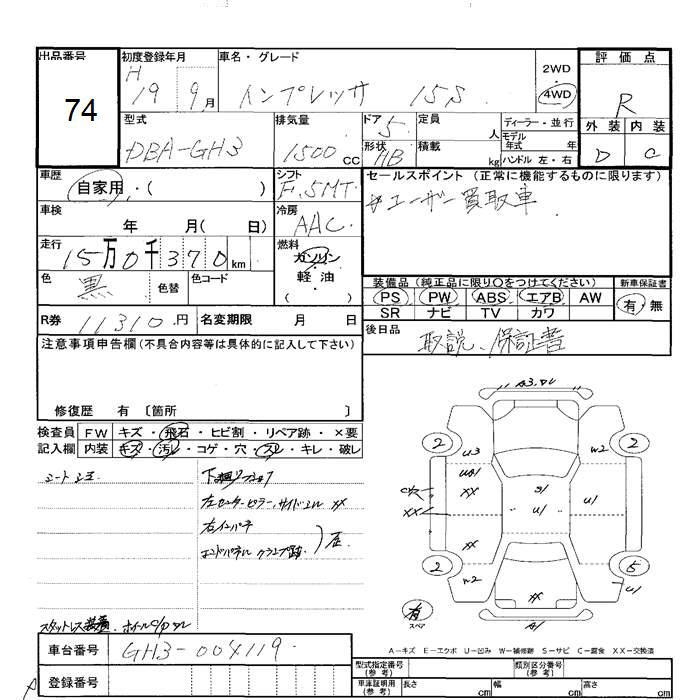 出品番号 初度登録年月 車名・グレード 評価点
74 H 19 9月 インプレッサ 15S 2WD 4WD R
型式 排気量 ドア 定員 人 ディーラー・並行 外装 内装
DBA-GH3 1500cc 5 形状 HB 積載 kg モデル年式 年 ハンドル 左・右 D C
車歴 シフト セールスポイント (正常に機能するものに限ります)
自家用・( ) F.5MT #ユーザー買取車
車検 年 月( 日) 冷房 AAC
走行 15万0千370km 燃料 ガソリン・軽油
色 黒 色替 色コード 装備品(純正品に限り○をつけてください) 新車保証書
PS PW ABS エアB AW 有・無
SR ナビ TV カワ
R券 11310円 名変期限 月 日 後日品 取説、保証書
注意事項申告欄(不具合内容等は具体的に記入して下さい)
修復歴 有〔箇所 〕
検査員 FW キズ・飛石・ヒビ割・リペア跡・×要
記入欄 内装 キズ・汚レ・コゲ・穴・スレ・キレ・破レ
A3.U
2 2
U3 W2
XX S1 U1 U1
XX
XX
2 5
W2 XX U1
有 スペア A1
A-キズ E-エクボ U-凹み W-補修跡 S-サビ C-腐食 XX-交換済
車台番号 GH3-004119
登録番号
型式指定番号(参考) 類別区分番号(参考)
車庫証明用(参考) 長さ cm 幅 cm 高さ cm